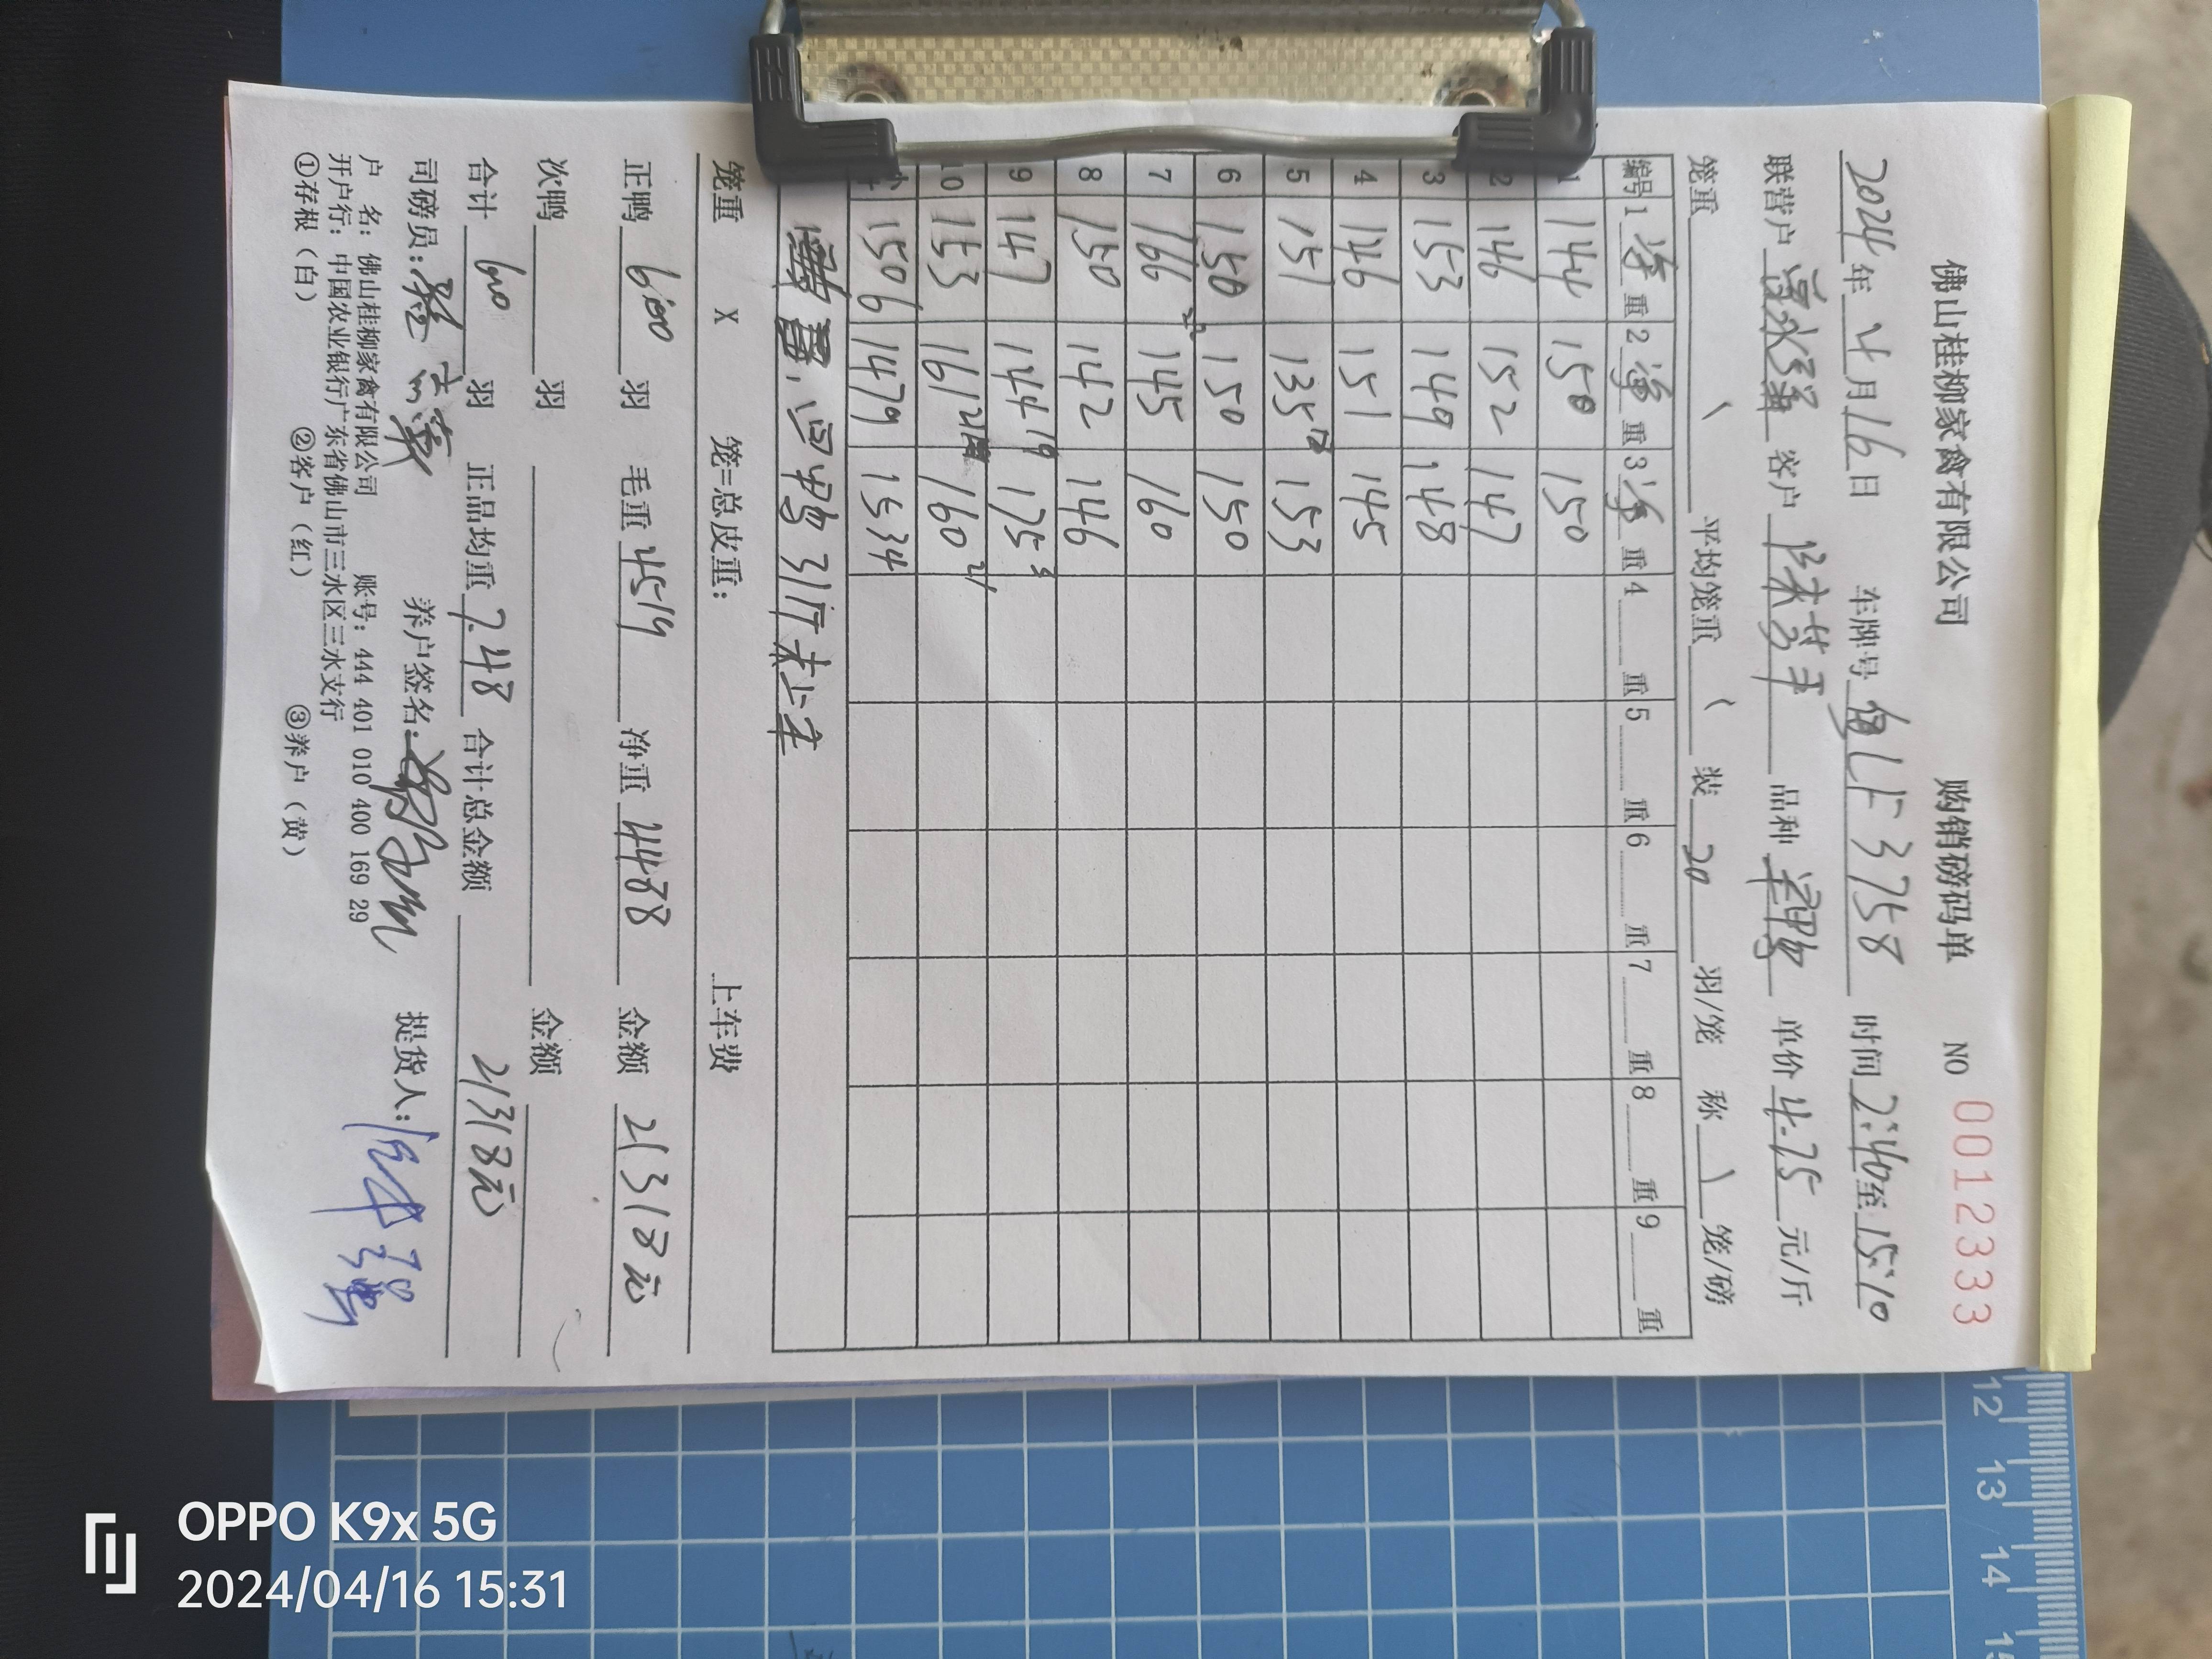 佛山桂柳家禽有限公司 购销磅码单 NO 0012333
2024年4月16日 车牌号 LF3758 时间2:40至15:10
联营户 客户 品种 单价4.75元/斤
笼重 平均笼重 装20羽/笼 称 笼/磅
编号 1净重 2净重 3净重 4重 5重 6重 7重 8重 9重
1 144 150 150
2 146 152 147
3 153 149 148
4 146 151 145
5 151 135 153
6 150 150 150
7 166 22 145 160
8 150 142 146
9 147 144 19 175
10 153 161 160 21
小计 1506 1479 1534
回鸭31斤未上车
笼重 X 笼=总皮重: 上车费
正鸭600羽 毛重4519 净重4488 金额21318元
次鸭 羽 金额
合计600羽 正品均重7.48 合计总金额 21318元
司磅员: 养户签名: 提货人:
户 名: 佛山桂柳家禽有限公司 账号: 444 401 010 400 169 29
开户行: 中国农业银行广东省佛山市三水区三水支行
①存根(白) ②客户(红) ③养户(黄)
12
13
14
15
OPPO K9x 5G
2024/04/16 15:31